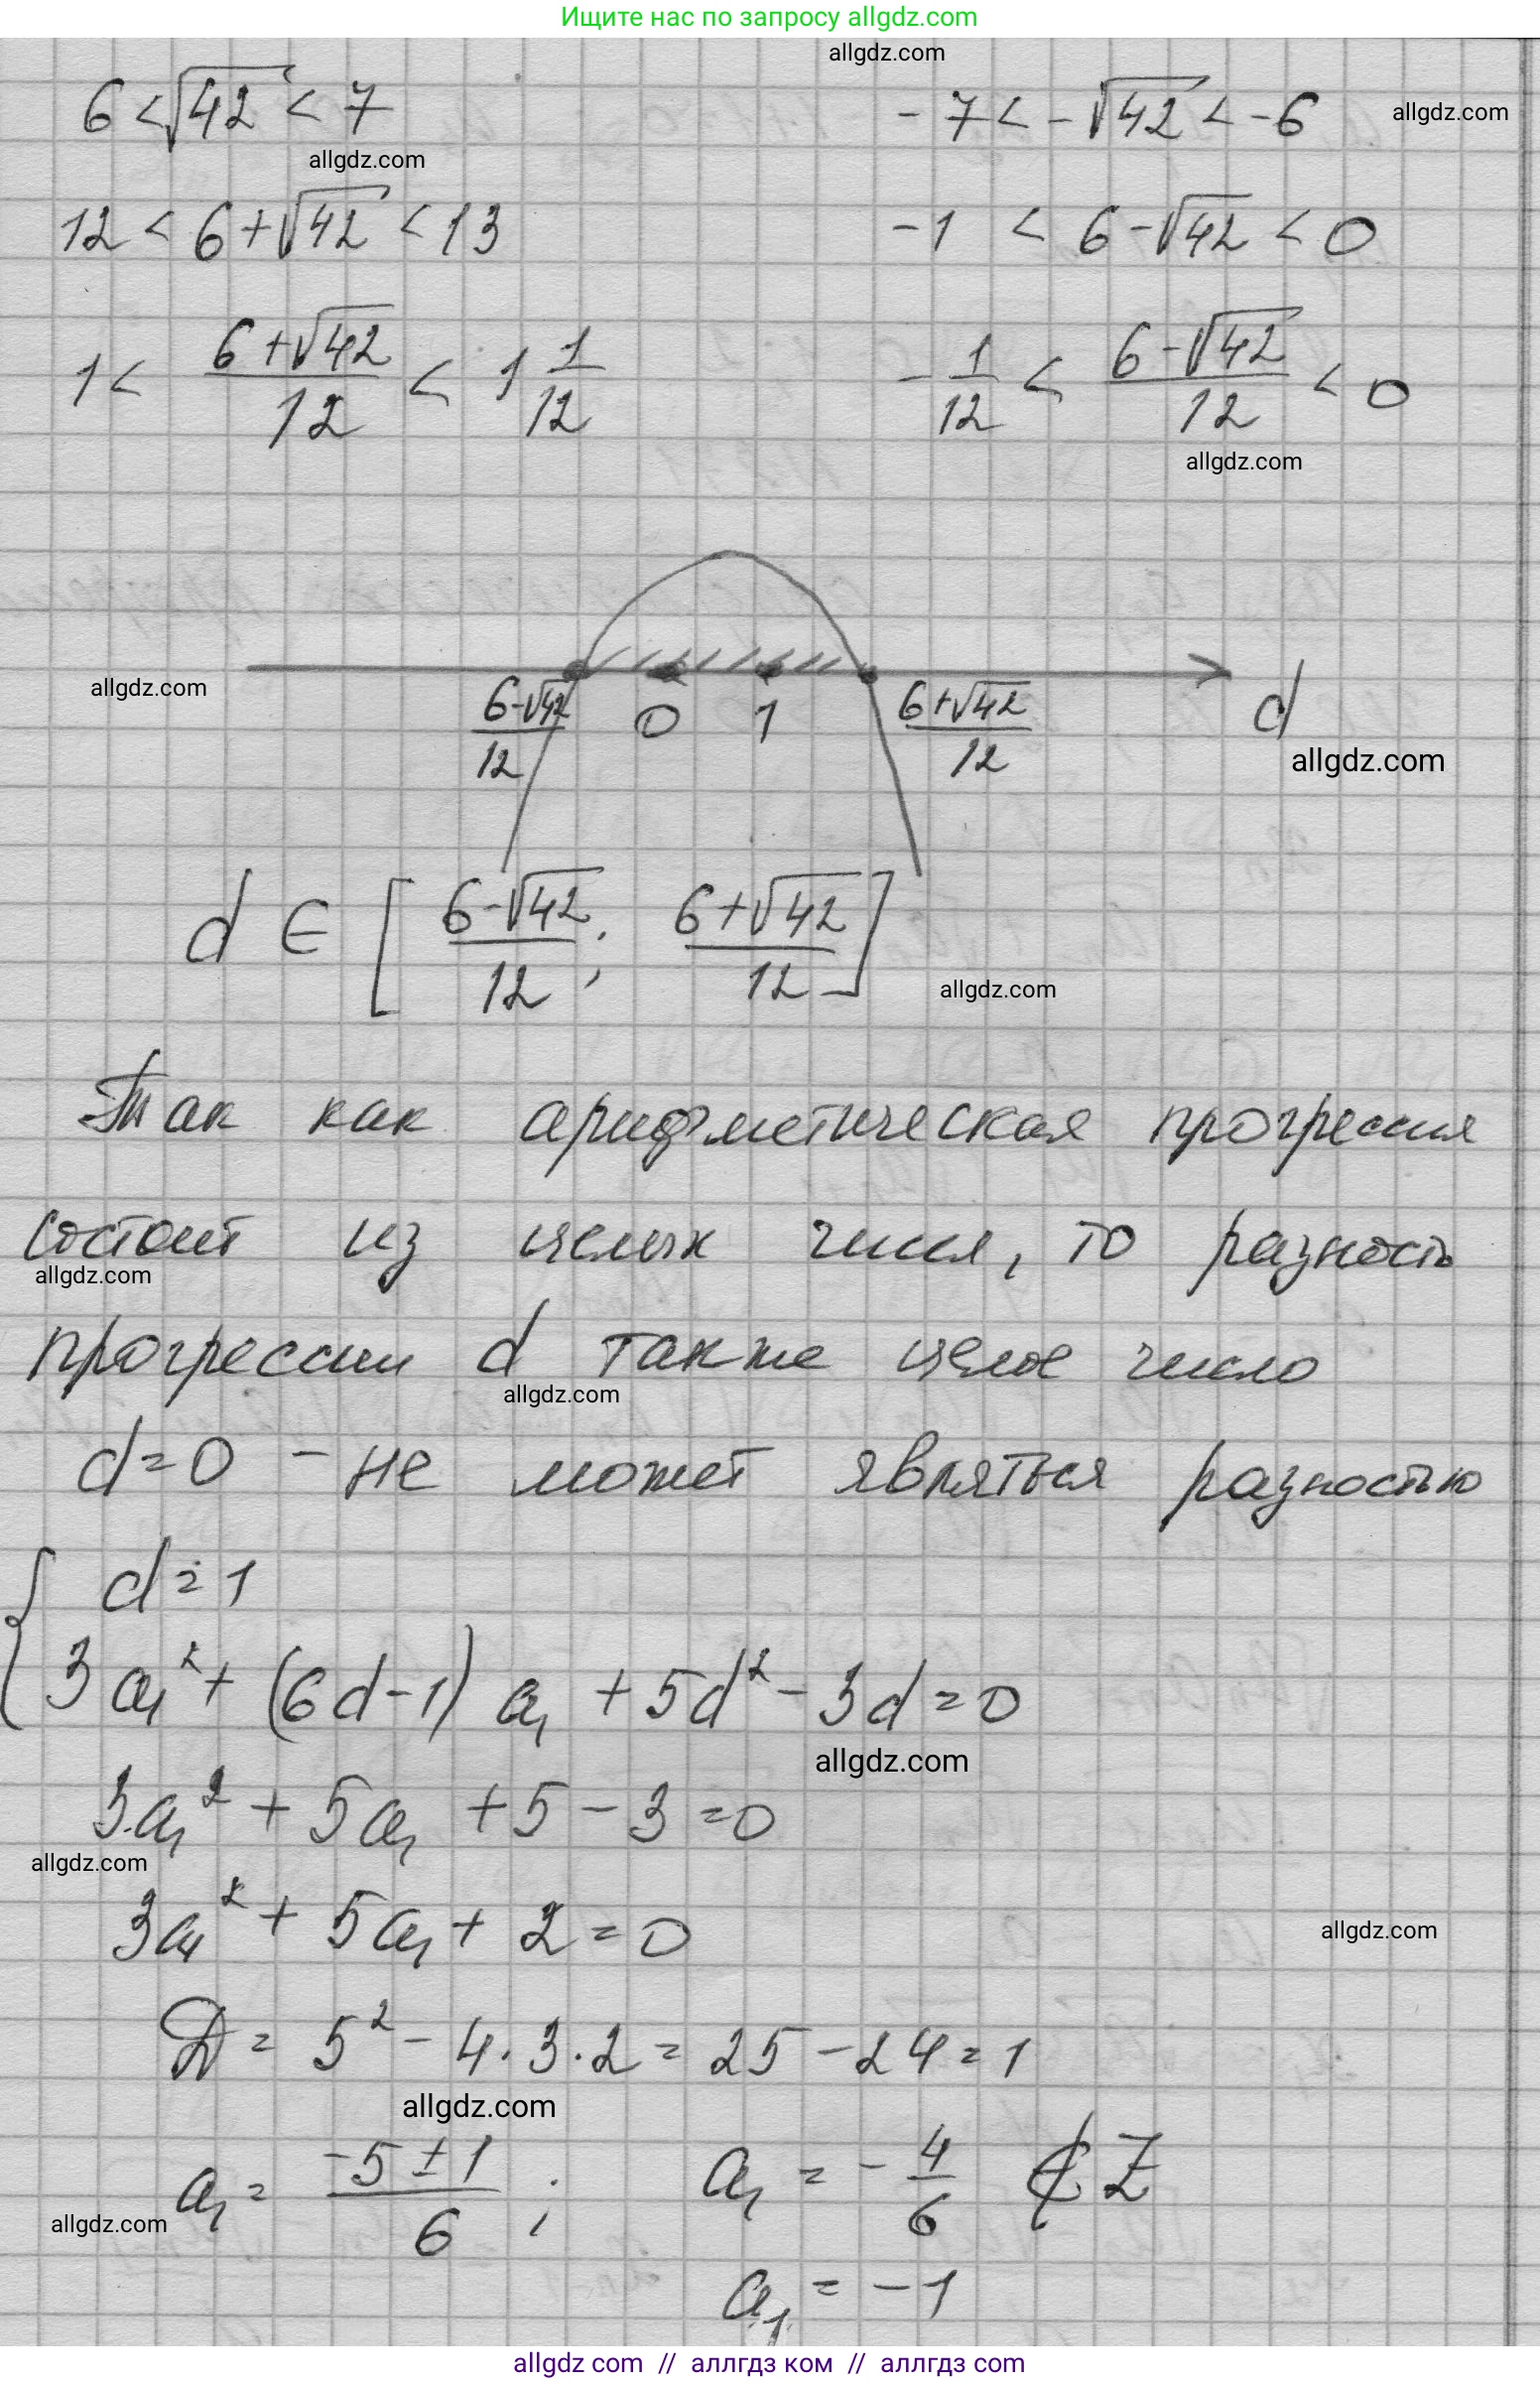 Ищите нас по запросу allgdz.com
allgdz.com
6 < √42 < 7 -7 < -√42 < -6 allgdz.com
allgdz.com
12 < 6+√42 < 13 -1 < 6-√42 < 0
1 < (6+√42)/12 < 1 1/12 -1/12 < (6-√42)/12 < 0
allgdz.com
allgdz.com (6-√42)/12 0 1 (6+√42)/12 d
allgdz.com
d ∈ [(6-√42)/12 ; (6+√42)/12]
allgdz.com
Так как арифметическая прогрессия
состоит из целых чисел, то разность
allgdz.com
прогрессии d также целое число
allgdz.com
d=0 - не может являться разностью
{ d=1
3a₁² + (6d-1) a₁ + 5d² - 3d = 0
allgdz.com
3·a₁² + 5a₁ + 5 - 3 = 0
allgdz.com
3a₁² + 5a₁ + 2 = 0
allgdz.com
D = 5² - 4·3·2 = 25 - 24 = 1
allgdz.com
a₁ = (-5 ± 1)/6 ; a₁ = -4/6 ∉ Z
allgdz.com
a₁ = -1
allgdz com // аллгдз ком // аллгдз com